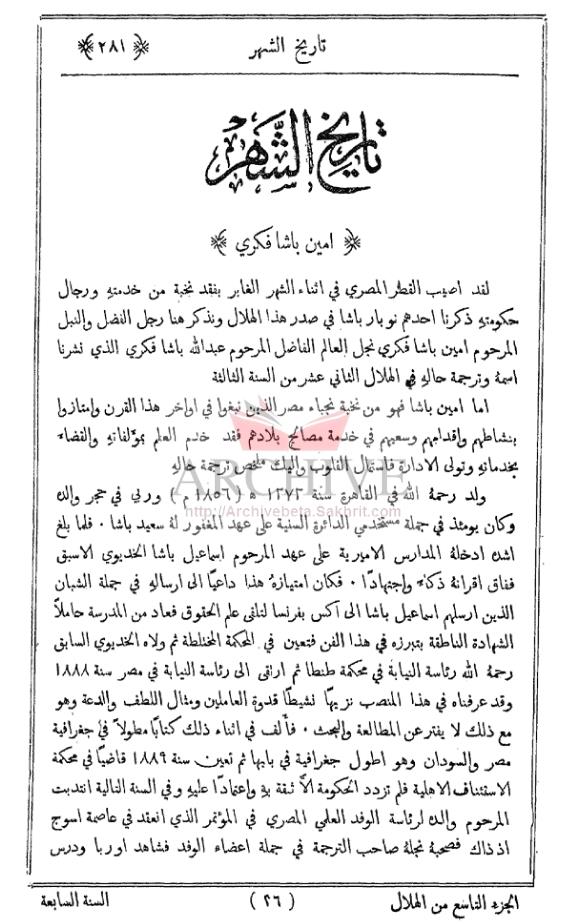 تاريخ الشهر ﴿ ٢٨١ ﴾
تاريخ الشهر
﴿ امين باشا فكري ﴾
لقد اصيب القطر المصري في اثناء الشهر الغابر بفقد نخبة من خدمتهِ ورجال
حكومتهِ ذكرنا احدهم نوبار باشا في صدر هذا الهلال ونذكر هنا رجل الفضل والنبل
المرحوم امين باشا فكري نجل العالم الفاضل المرحوم عبدالله باشا فكري الذي نشرنا
اسمهُ وترجمة حالهِ في الهلال الثاني عشر من السنة الثالثة
اما امين باشا فهو من نخبة نجباء مصر الذين نبغوا في اواخر هذا القرن وامتازوا
بنشاطهم واقدامهم وسعيهم في خدمة مصالح بلادهم فقد خدم العلم بمؤلفاتهِ والقضاء
بخدماتهِ وتولى الادارة فاستمال القلوب واليك ملخص ترجمة حالهِ
ARCHIVE
ولد رحمهُ الله في القاهرة سنة ١٢٧٢ ه ( ١٨٥٦ م ) وربي في حجر والدهِ
http://Archivebeta.Sakhrit.com
وكان يومئذٍ في جملة مستخدمي الدائرة السنية على عهد المغفور لهُ سعيد باشا ٠ فلما بلغ
اشدهُ ادخلهُ المدارس الاميرية على عهد المرحوم اسماعيل باشا الخديوي الاسبق
ففاق اقرانهُ ذكاءً واجتهادًا ٠ فكان امتيازهُ هذا داعيًا الى ارسالهِ في جملة الشبان
الذين ارسلهم اسماعيل باشا الى آكس بفرنسا لتلقي علم الحقوق فعاد من المدرسة حاملاً
الشهادة الناطقة بتبرزه في هذا الفن فتعين في المحكمة المختلطة ثم ولاه الخديوي السابق
رحمهُ الله رئاسة النيابة في محكمة طنطا ثم ارتقى الى رئاسة النيابة في مصر سنة ١٨٨٨
وقد عرفناه في هذا المنصب نزيهًا نشيطًا قدوة العاملين ومثال اللطف والدعة وهو
مع ذلك لا يفتر عن المطالعة والبحث ٠ فألف في اثناء ذلك كتابًا مطولاً في جغرافية
مصر والسودان وهو اطول جغرافية في بابها ثم تعين سنة ١٨٨٩ قاضيًا في محكمة
الاستئناف الاهلية فلم تزدد الحكومة الاَّ ثقة بهِ واعتمادًا عليهِ وفي السنة التالية انتدبت
المرحوم والدهُ لرئاسة الوفد العلمي المصري في المؤتمر الذي انعقد في عاصمة اسوج
اذ ذاك فصحبهُ نجلهُ صاحب الترجمة في جملة اعضاء الوفد فشاهد اوربا ودرس
الجزء التاسع من الهلال ( ٣٦ ) السنة السابعة